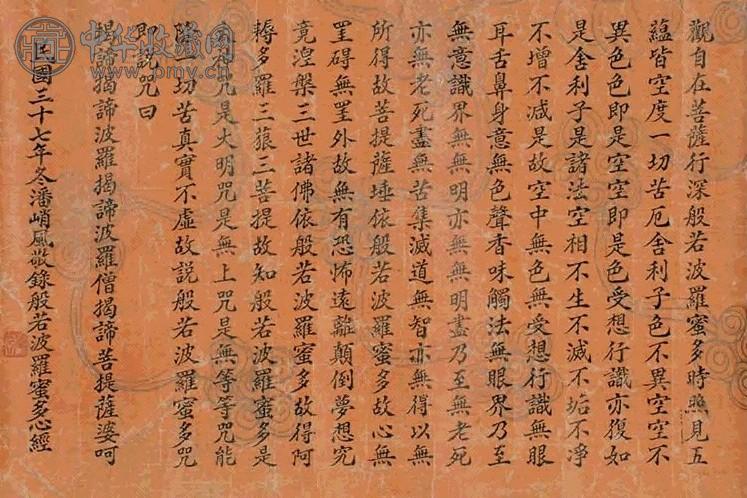 觀自在菩薩行深般若波羅蜜多時照見五
蘊皆空度一切苦厄舍利子色不異空空不
異色色即是空空即是色受想行識亦復如
是舍利子是諸法空相不生不滅不垢不淨
不增不減是故空中無色無受想行識無眼
耳舌鼻身意無色聲香味觸法無眼界乃至
無意識界無無明亦無無明盡乃至無老死
亦無老死盡無苦集滅道無智亦無得以無
所得故菩提薩埵依般若波羅蜜多故心無
罣碍無罣外故無有恐怖遠離顛倒夢想究
竟涅槃三世諸佛依般若波羅蜜多故得阿
耨多羅三藐三菩提故知般若波羅蜜多是
大神咒是大明咒是無上咒是無等等咒能
除一切苦真實不虛故說般若波羅蜜多咒
即說咒曰
揭諦揭諦波羅揭諦波羅僧揭諦菩提薩婆呵
民國三十七年冬潘峭風敬錄般若波羅蜜多心經
中华收藏网
www.pmy.cn